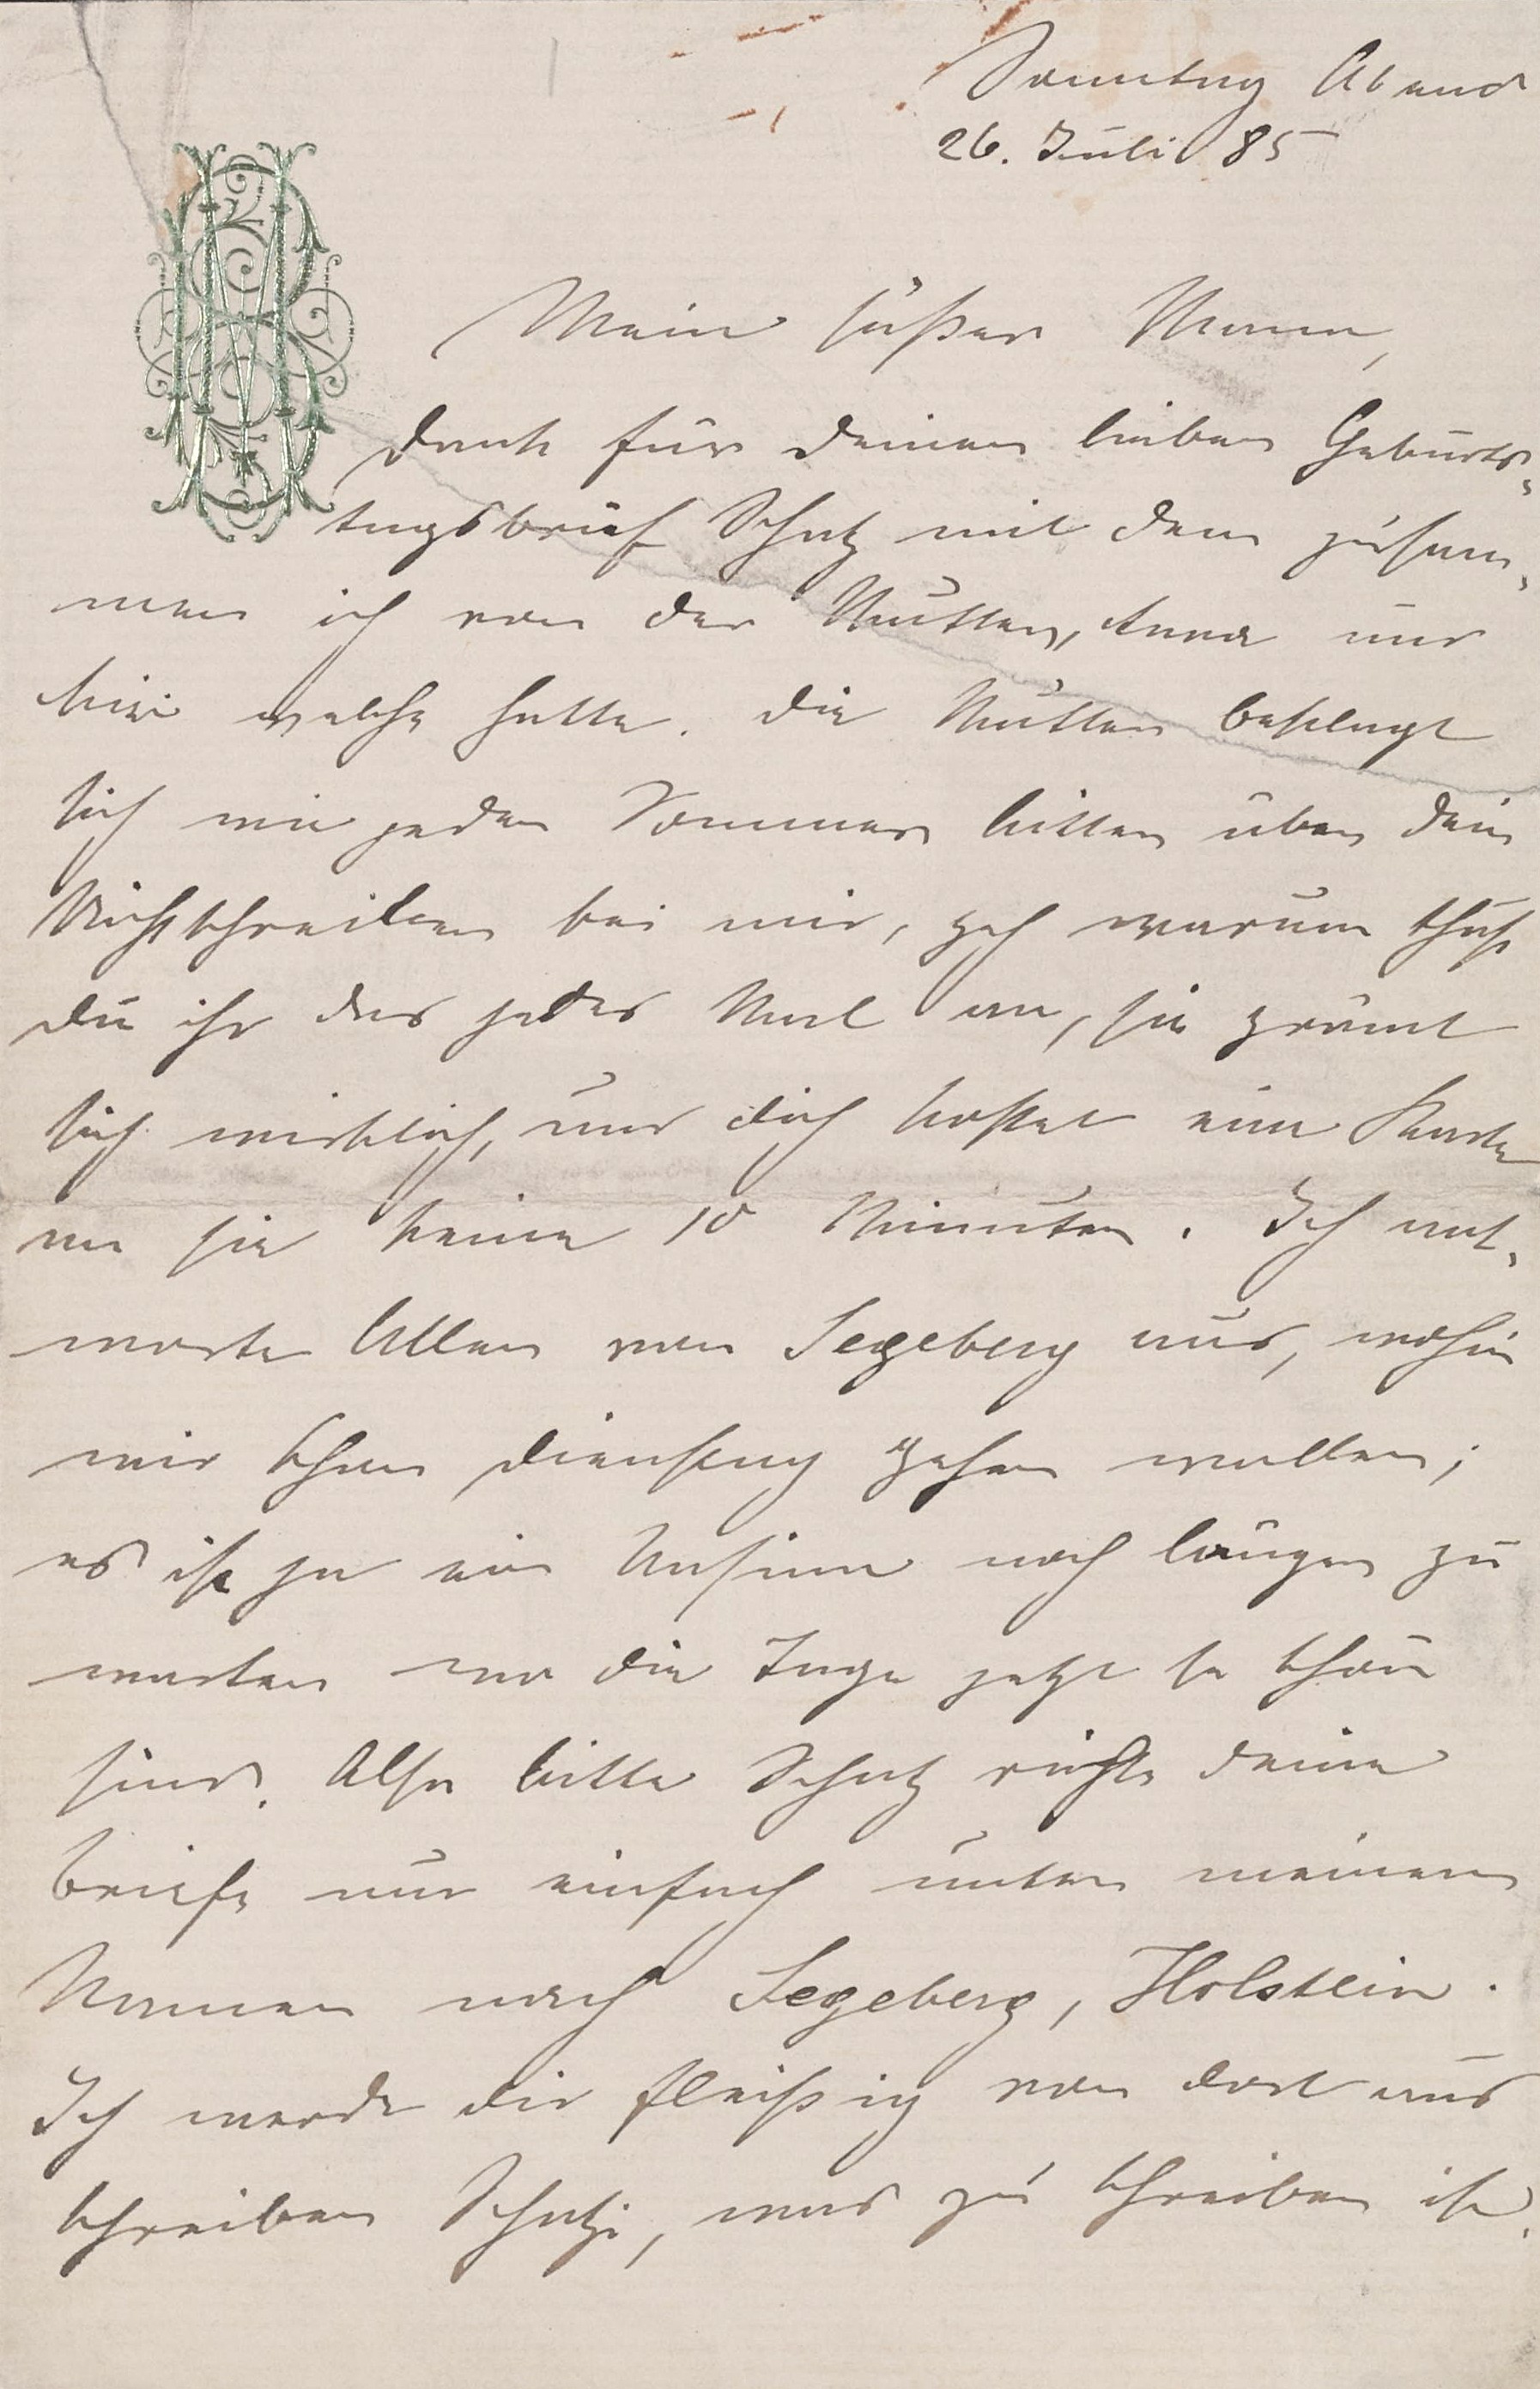 Sonntag Abend
26. Juli 85
Mein süßer Mann,
Dank für deinen lieben Geburts-
tagsbrief Schatz mit dem zusam-
men ich von der Mutter, Anna und
welche hatte. Die Mutter beklagt
sich wie jeden Sommer bitter über dein
Nichtschreiben bei mir, geh warum thust
du ihr das jedes Mal an, sie grämt
sich wirklich, und dich kostet eine Karte
an sie keine 10 Minuten. Ich ant-
worte Allen von Segeberg aus, wohin
wir schon Dienstag gehen wollen;
es ist ja ein Unsinn noch länger zu
warten wo die Tage jetzt so schön
sind. Also bitte Schatz richte deine
Briefe nur einfach unter meinem
Namen nach Segeberg, Holstein.
Ich werde dir fleißig von dort aus
schreiben Schatzi, was zu schreiben ist.